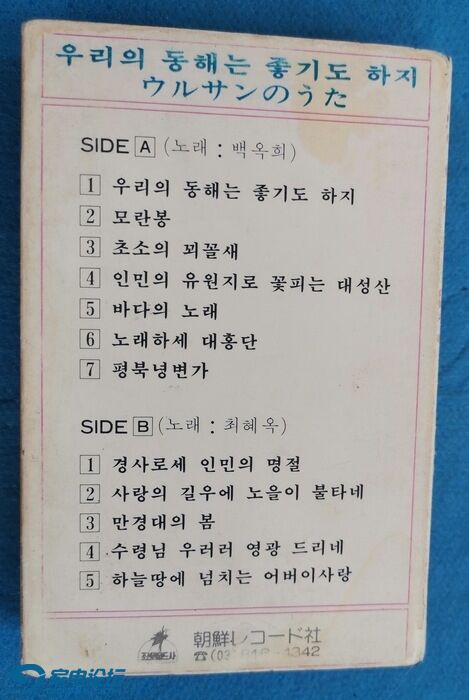 우리의 동해는 좋기도 하지
ウルサンのうた
SIDE A (노래 : 백옥희)
1 우리의 동해는 좋기도 하지
2 모란봉
3 초소의 꾀꼴새
4 인민의 유원지로 꽃피는 대성산
5 바다의 노래
6 노래하세 대홍단
7 평북녕변가
SIDE B (노래 : 최혜옥)
1 경사로세 인민의 명절
2 사랑의 길우에 노을이 불타네
3 만경대의 봄
4 수령님 우러러 영광 드리네
5 하늘땅에 넘치는 어버이사랑
朝鮮レコード社
☎(03
1342
家电论坛